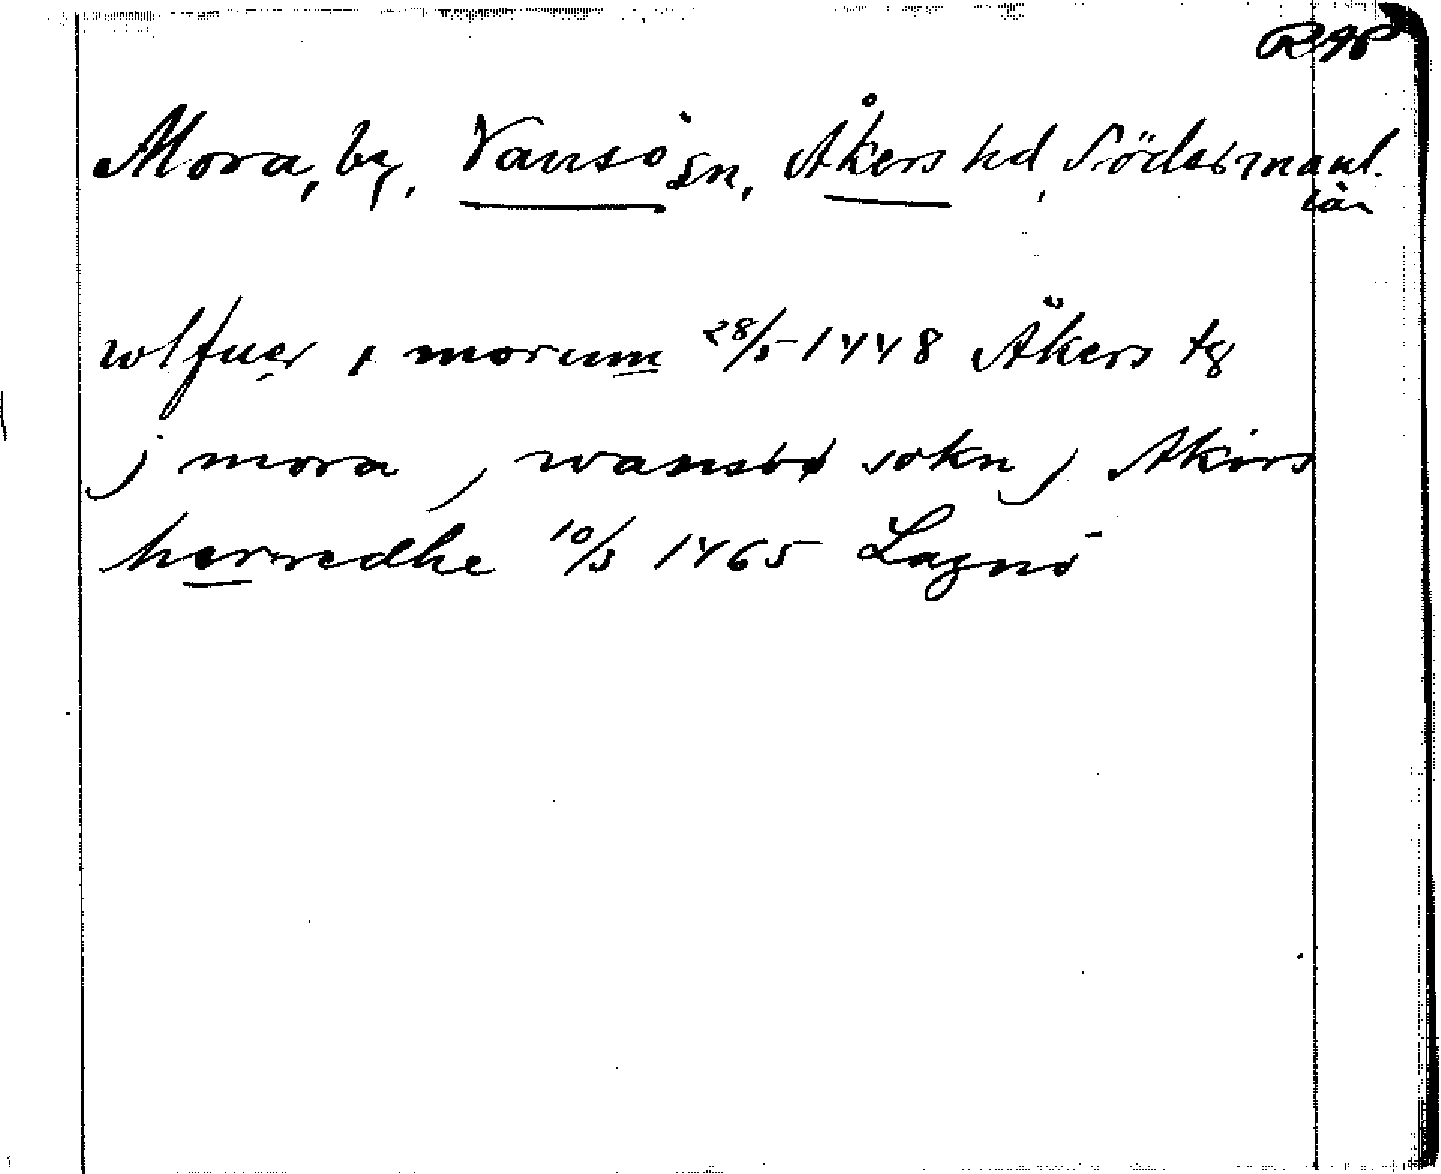 RAP
Mora, by, Vansö sn, Åkers hd, Södermanl.
län
wlfuer i morum 28/5 1448 Åkers tg
j mora j wansø sokn j Akirs
herredhe 10/3 1465 Lagnö